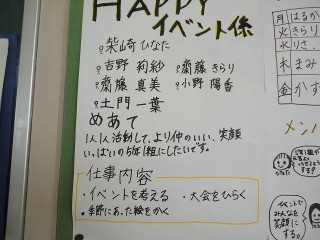 HAPPY
イベント係
柴崎 ひなた
吉野 莉紗 齋藤 きらり
齋藤 真美 小野 陽香
土門 一葉
めあて
1人1人活動して、より仲のいい、笑顔
いっぱいの5年1組にしたいです。
仕事内容
・イベントを考える ・大会をひらく
・季節にあった絵をかく
月 はるか
火 きらり
水 りさ
木 まみ
金 かす
メン
イベントで
みんなを
笑顔に
する。